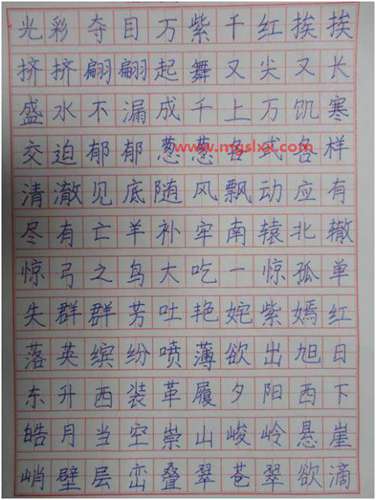 光彩夺目万紫千红挨挨
挤挤翩翩起舞又尖又长
盛水不漏成千上万饥寒
交迫郁郁葱葱各式各样
www.mgslxx.com
清澈见底随风飘动应有
尽有亡羊补牢南辕北辙
惊弓之鸟大吃一惊孤单
失群群芳吐艳姹紫嫣红
落英缤纷喷薄欲出旭日
东升西装革履夕阳西下
皓月当空崇山峻岭悬崖
峭壁层峦叠翠苍翠欲滴